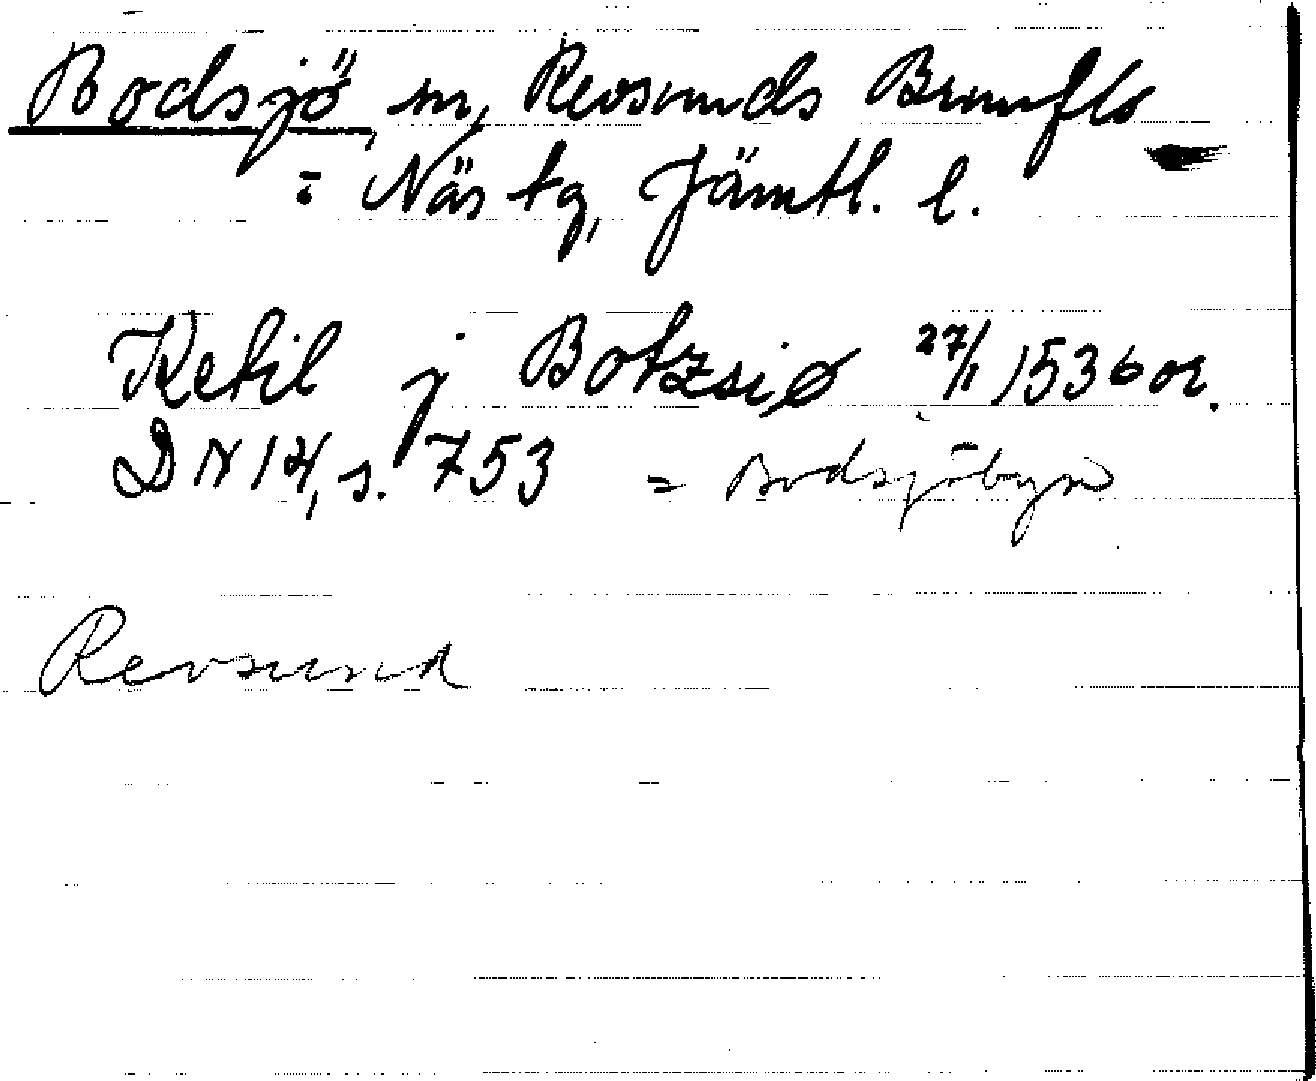 Bodsjö, sn, Revsunds Brunflo
= Näs tg, Jämtl. l.
Ketil j Botzsiø 27/1 1536 or.
DN 14, s. 753 = Bodsjöbyn
Revsund